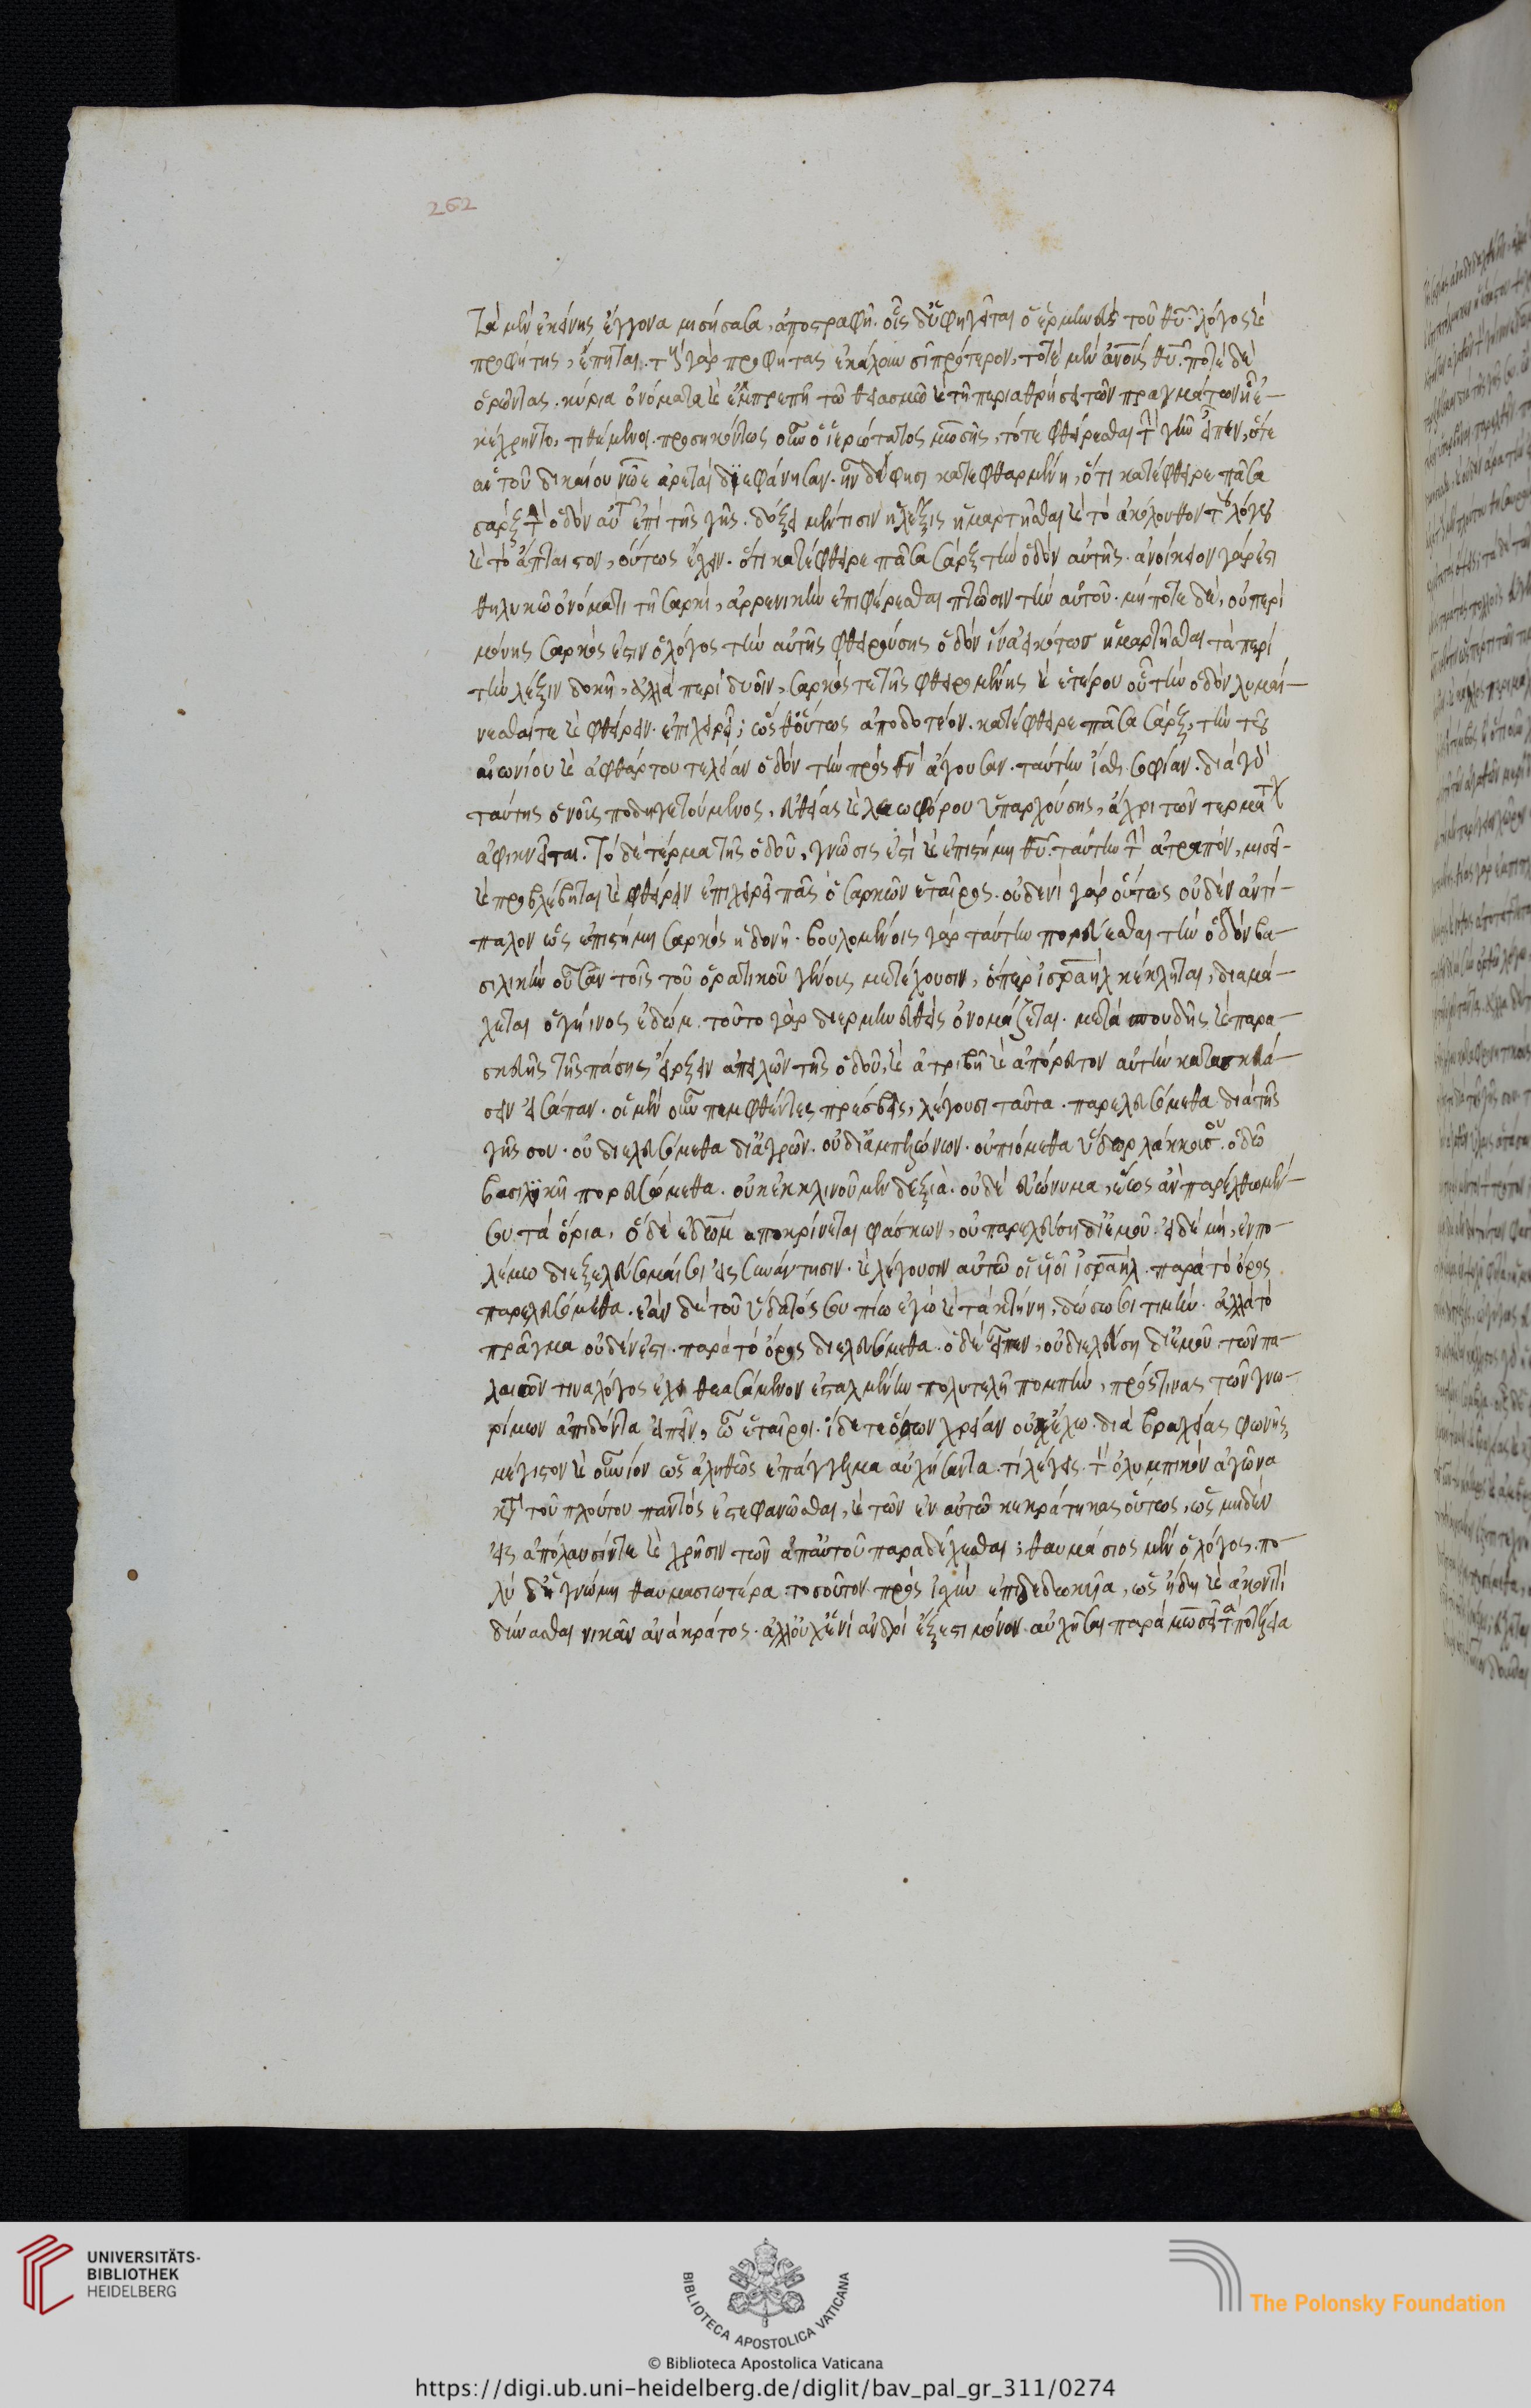 262
τὰ μὲν ἐκείνης ἔγγονα μισήσασα, ἀποστραφῆ. οἷς δ' ὑφηγεῖται ὁ ἑρμηνεὺς τοῦ θυ λόγος καὶ
προφήτης, ἕπηται. τοὺς γὰρ προφήτας ἐκάλουν οἱ πρότερον, τοτὲ μὲν ἀνους θυ, ποτὲ δὲ
ὁρῶντας. κύρια ὀνόματα καὶ ἐμπρεπῆ τῶ θειασμῶ καὶ τῆ περιαθρήσει τῶν πραγμάτων ἧ ἐ-
κέχρηντο, τιθέμενοι. προσηκόντως οὖν ὁ ἱερώτατος μωσῆς, τότε φθείρεσθαι τὴν γῆν εἶπεν, ὅτε
αἱ τοῦ δικαίου νῶε ἀρεταὶ διεφάνησαν. ἦν δέ φησι κατεφθαρμένη, ὅτι κατέφθειρε πᾶσα
σὰρξ τὴν ὁδὸν αὐτοῦ ἐπὶ τῆς γῆς. δόξει μέν τισιν ἡ λέξις ἡμαρτῆσθαι καὶ τὸ ἀκόλουθον τοῦ λόγου
καὶ τὸ ἄπταιστον, οὕτως ἔχειν. ὅτι κατέφθειρε πᾶσα σὰρξ τὴν ὁδὸν αὐτῆς. ἀνοίκειον γάρ ἐστι
θηλυκῶ ὀνόματι τῆ σαρκὶ, ἀρρενικὴν ἐπιφέρεσθαι πτῶσιν τὴν αὐτοῦ. μήποτε δὲ, οὐ περὶ
μόνης σαρκός ἐστιν ὁ λόγος τὴν αὐτῆς φθειρούσης ὁδὸν ἵνα εἰκότως ἡμαρτῆσθαι τὰ περὶ
τὴν λέξιν δοκῆ, ἀλλὰ περὶ δυοῖν, σαρκός τε τῆς φθειρομένης καὶ ἑτέρου οὗ τὴν ὁδὸν λυμαί-
νεσθαί τε καὶ φθείρειν ἐπιχειρεῖ; ὥσθ' οὕτως ἀποδοτέον. κατέφθειρε πᾶσα σὰρξ, τὴν τοῦ
αἰωνίου καὶ ἀφθάρτου τελείαν ὁδὸν τὴν πρὸς θν ἄγουσαν. ταύτην ἴσθι σοφίαν. διὰ γὰρ
ταύτης ὁ νοῦς ποδηγετούμενος, εὐθείας καὶ λεωφόρου ὑπαρχούσης, ἄχρι τῶν τερμάτων
ἀφικνεῖται. τὸ δὲ τέρμα τῆς ὁδοῦ, γνῶσίς ἐστι καὶ ἐπιστήμη θυ. ταύτην τὴν ἀτραπὸν, μισεῖ
καὶ προβέβληται καὶ φθείρειν ἐπιχειρεῖ πᾶς ὁ σαρκῶν ἑταῖρος. οὐδενὶ γὰρ οὕτως οὐδὲν ἀντί-
παλον ὡς ἐπιστήμη σαρκὸς ἡδονῆ. βουλομένοις γὰρ ταύτην πορεύεσθαι τὴν ὁδὸν βα-
σιλικὴν οὖσαν τοῖς τοῦ ὁρατικοῦ γένους μετέχουσιν, ὅπερ ἰσραὴλ κέκληται, διαμά-
χεται ὁ γήινος ἐδώμ. τοῦτο γὰρ διερμηνευθεὶς ὀνομάζεται. μετὰ σπουδῆς καὶ παρα-
σκευῆς τῆς πάσης εἴρξειν ἀπειλῶν τῆς ὁδοῦ, καὶ ἀτριβῆ καὶ ἀπόρευτον αὐτὴν κατασκευά-
σειν εἰσάπαν. οἱ μὲν οὖν πεμφθέντες πρέσβεις, λέγουσι ταῦτα. παρελευσόμεθα διὰ τῆς
γῆς σου. οὐ διελευσόμεθα δι' ἀγρῶν. οὐ δι' ἀμπελώνων. οὐ πιόμεθα ὕδωρ λάκκου σου. ὁδῶ
βασιλικῆ πορευσόμεθα. οὐκ ἐκκλινοῦμεν δεξιὰ οὐδὲ εὐώνυμα, ἕως ἂν παρέλθωμέν
σου τὰ ὅρια. ὁ δὲ ἐδωμ ἀποκρίνεται φάσκων, οὐ παρελεύση δι' ἐμοῦ. εἰ δὲ μὴ, ἐν πο-
λέμω διεξελεύσομαί σοι εἰς συνάντησιν. καὶ λέγουσιν αὐτῶ οἱ υἱοὶ ἰσραήλ. παρὰ τὸ ὄρος
παρελευσόμεθα. ἐὰν δὲ τοῦ ὕδατός σου πίω ἐγὼ καὶ τὰ κτήνη, δώσω σοι τιμήν. ἀλλὰ τὸ
πρᾶγμα οὐδέν ἐστι. παρὰ τὸ ὄρος διελευσόμεθα. ὁ δὲ εἶπεν, οὐ διελεύση δι' ἐμοῦ. τῶν πα-
λαιῶν τινα λόγος ἔχει θεασάμενον ἐσταλμένην πολυτελῆ πομπὴν, πρός τινας τῶν γνω-
ρίμων ἀπιδόντα εἰπεῖν, ὦ ἑταῖροι. ἴδετε ὅσων χρείαν οὐκ ἔχω. διὰ βραχείας φωνῆς
μέγιστον καὶ οὐράνιον ὡς ἀληθῶς ἐπάγγελμα αὐχήσαντα. τί λέγεις. τὸν ὀλυμπικὸν ἀγῶνα
κατὰ τοῦ πλούτου παντὸς ἐστεφάνωσαι, καὶ τῶν ἐν αὐτῶ κεκράτηκας οὕτως, ὡς μηδὲν
εἰς ἀπόλαυσίν τε καὶ χρῆσιν τῶν ἀπ' αὐτοῦ παραδέχεσθαι; θαυμάσιος μὲν ὁ λόγος. πο-
λὺ δὲ ἡ γνώμη θαυμασιωτέρα τοσοῦτον πρὸς ἰσχὺν ἐπιδεδωκυῖα, ὡς ἤδη καὶ ἀκονιτὶ
δύνασθαι νικᾶν ἀνὰ κράτος. ἀλλ' οὐχ ἑνὶ ἀνδρὶ ἔξεστι μόνον αὐχῆσαι παρὰ μωσεῖ τὰ προτέλεια
UNIVERSITÄTS-
BIBLIOTHEK
HEIDELBERG
BIBLIOTECA APOSTOLICA VATICANA
The Polonsky Foundation
© Biblioteca Apostolica Vaticana
https://digi.ub.uni-heidelberg.de/diglit/bav_pal_gr_311/0274